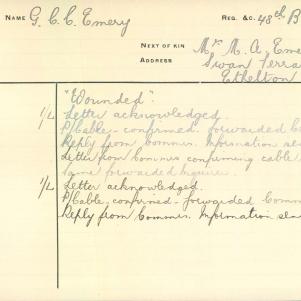 NAME G. C. C. Emery
REG. &C. 48th B
NEXT OF KIN Mrs. M. A. Eme
ADDRESS Swan Terra
Ethelton
"Wounded".
1/L Letter acknowledged.
P/Cable - confirmed. forwarded Co
Reply from Commrs. Information sla
Letter from Commrs confirming cable
same forwarded Inquirer.
1/L Letter acknowledged.
P/Cable, confirmed - forwarded Comm
Reply from Commrs. Information sla